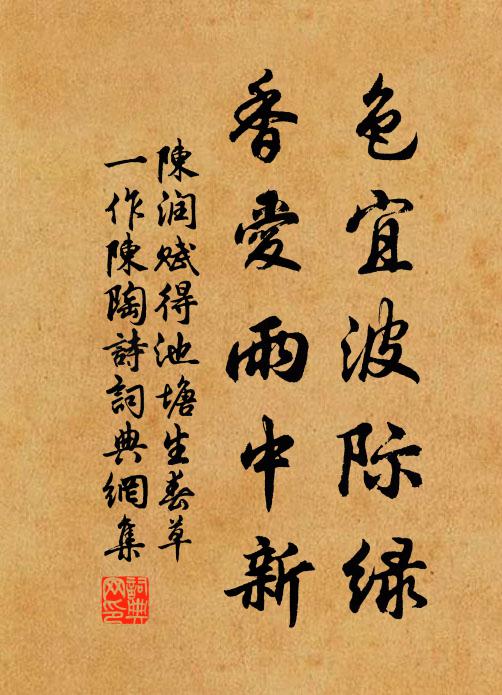 色宜波际绿
香愛雨中新
陳润赋得池塘生春草
一作陳陶詩詞典網集
詞典網印